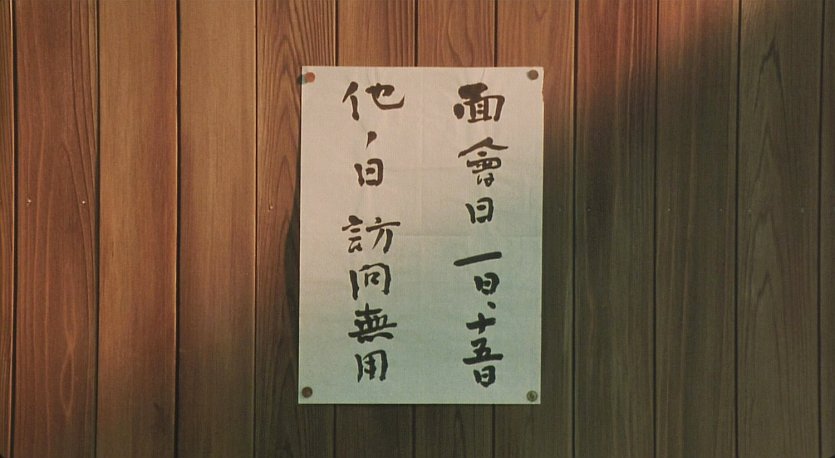 面會日 一日、十五日
他ノ日 訪問無用